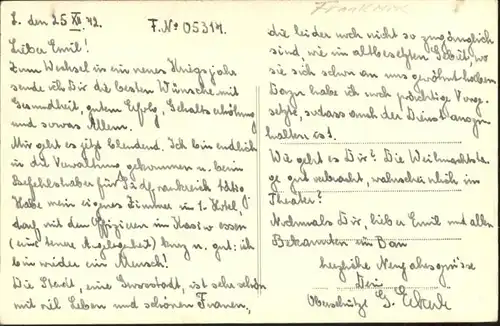 F. den 25 XII 42.
F.No 05317.
Frankreich
Lieber Emil!
Zum Wechsel in ein neues Kriegsjahr
sende ich Dir die besten Wünsche mit
Gesundheit, gutem Erfolg, Gehaltserhöhung
und sowas Allem.
Mir geht es jetzt blendend. Ich bin endlich
in die Verwaltung gekommen u. beim
Befehlshaber für Südfrankreich tätig
Habe mein eigenes Zimmer im 1. Hotel,
darf mit den Offizieren im Kasino essen
(eine teuere Angelegenheit) kurz u. gut: ich
bin wieder ein Mensch!
Die Stadt, eine Grosstadt, ist sehr schön
mit viel Leben und schönen Frauen,
die leider noch nicht so zugänglich
sind, wie im altbesetzten Gebiet, wo
sie sich schon an uns gewöhnt haben.
Dazu habe ich noch prächtige Vorge-
setzte, sodass auch der Dienst auszu-
halten ist.
Wie geht es Dir? Die Weihnachtsta-
ge gut verbracht, wahrscheinlich im
Theater?
Nochmals Dir, lieber Emil und allen
Bekannten im Bau
herzliche Neujahrsgrüsse
Dein
Oberschütze G.